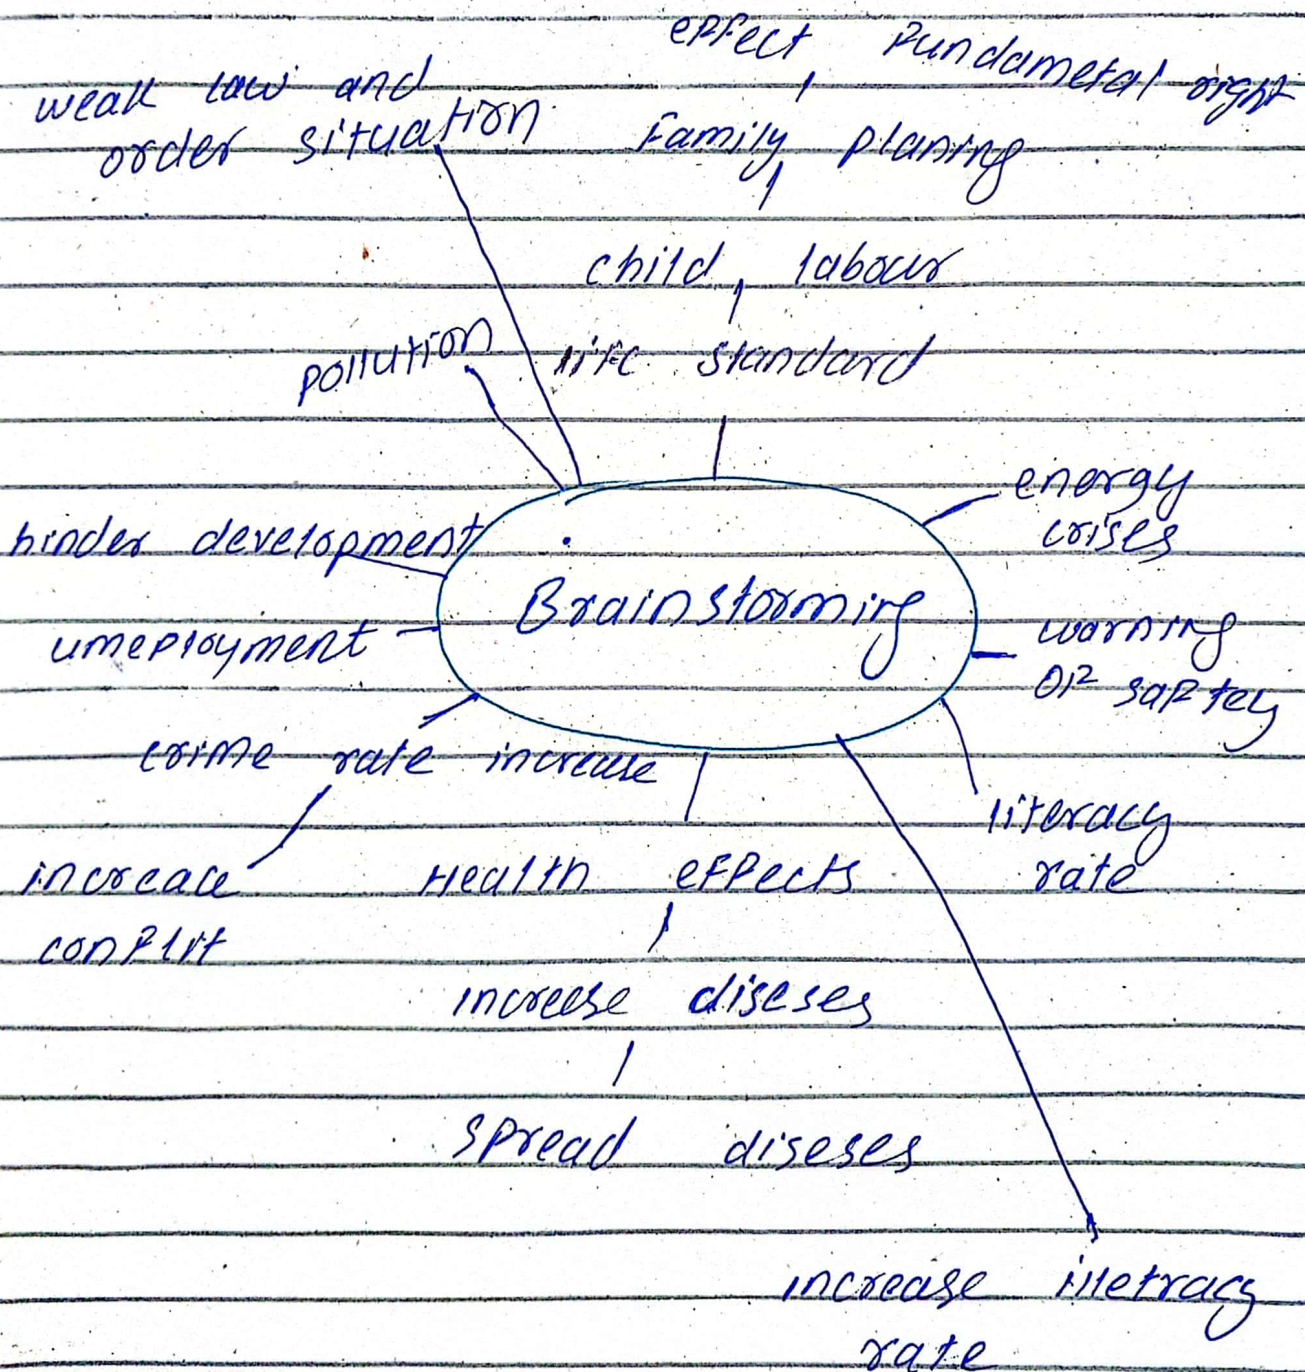 effect fundametal right
weak law and
order situation
Family planing
child labour
pollution
life standard
energy
crises
hinder development
Brainstorming
umeployment
warning
of saftey
crime rate increase
literacy
rate
increace
conflit
Health effects
increese diseses
spread diseses
increase illetracy
rate